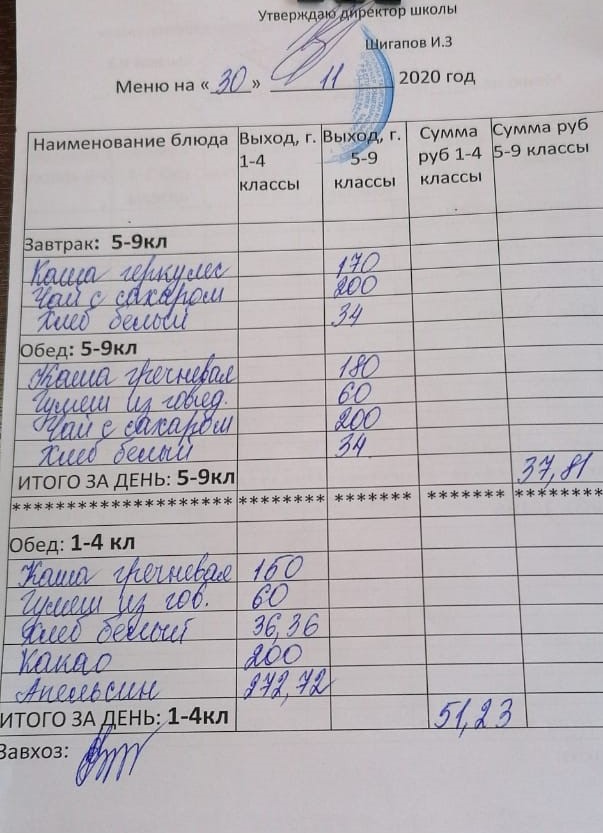 Утверждаю директор школы
Шигапов И.З
Меню на «30» 11 2020 год
Наименование блюда Выход, г. 1-4 классы Выход, г. 5-9 классы Сумма руб 1-4 классы Сумма руб 5-9 классы
Завтрак: 5-9кл
Каша геркулес 170
Чай с сахаром 200
Хлеб белый 34
Обед: 5-9кл
Каша гречневая 180
Гуляш из говед. 60
Чай с сахаром 200
Хлеб белый 34
ИТОГО ЗА ДЕНЬ: 5-9кл 37,81
******************** ******** ******* ******* ********
Обед: 1-4 кл
Каша гречневая 150
Гуляш из гов. 60
Хлеб белый 36,36
Какао 200
Апельсин 272,72
ИТОГО ЗА ДЕНЬ: 1-4кл 51,23
Завхоз: